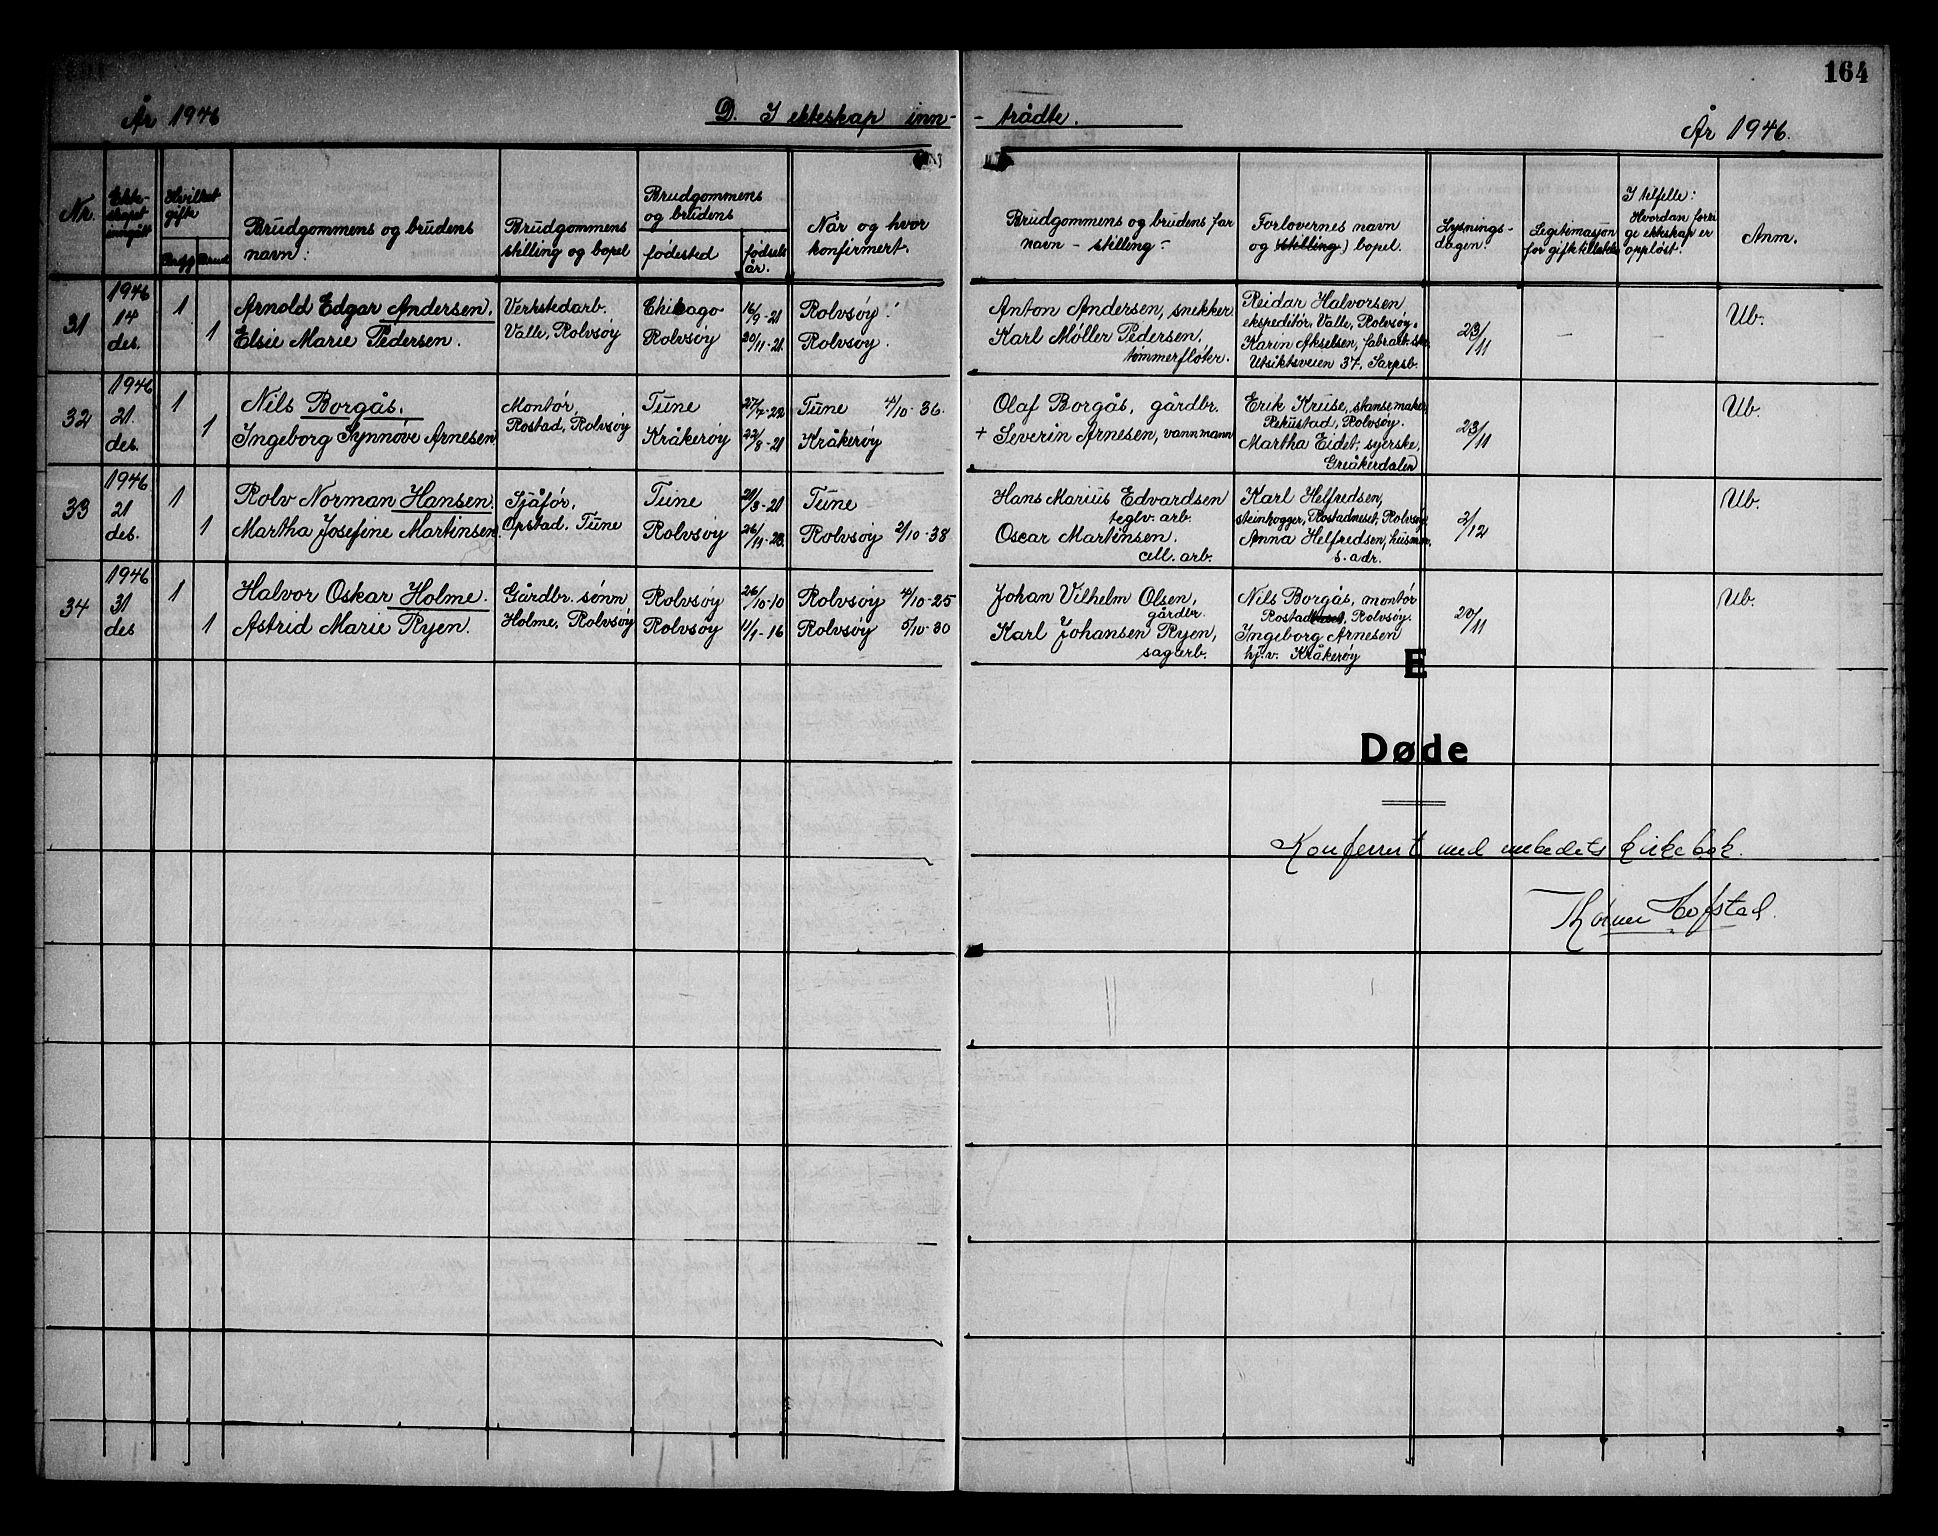 164
År 1946 D. I ekteskap inn- - trådte. År 1946.
Nr.
Ekte-
skapet
inngått
Hvilket
gifte
Brudg Brud
Brudgommens og brudens
navn:
Brudgommens
stilling og bopel
Brudgommens
og brudens
fødested
fødsels
år.
Når og hvor
konfirmert.
Brudgommens og brudens far
navn - stilling -
Forlovernes navn
og (stilling) bopel.
Lysnings-
dagen.
Legitimasjon
for gifte tillatelse
I tilfelle:
Hvordan forri
ge ekteskap er
oppløst.
Anm.
31
1946
14
des.
1
1
Arnold Edgar Andersen.
Elsie Marie Pedersen.
Verkstedarb.
Valle, Rolvsøy
Chicago
Rolvsøy
16/9-21
20/11-21
Rolvsøy.
Rolvsøy.
Anton Andersen, snekker
Karl Møller Pedersen,
tømmerfløter.
Reidar Halvorsen
ekspeditør, Valle, Rolvsøy.
Karin Akselsen, fabrikk
Utsiktsveien 37, Sarpsb.
23/11
-
Ub.
32
1946
21
des.
1
1
Nils Borgås.
Ingeborg Synnøve Arnesen
Montør,
Rostad, Rolvsøy
Tune
Kråkerøy
27/7-22
22/8-21
Tune 4/10-36.
Kråkerøy
Olaf Borgås, gårdbr.
+ Severin Arnesen, vannmann
Erik Kruse, stansemaker
Rekustad, Rolvsøy.
Martha Eidet, syerske,
Greåkerdalen
23/11
Ub.
33
1946
21
des.
1
1
Rolv Norman Hansen.
Martha Josefine Martinsen.
Sjåfør,
Opstad, Tune
Tune
Rolvsøy
21/3-21
26/11-23
Tune
Rolvsøy 2/10-38
Hans Marius Edvardsen
teglv. arb.
Oscar Martinsen.
cell. arb.
Karl Helfredsen,
steinhogger, Rostadneset, Rolvsøy
Anna Helfredsen, husmor
s. adr.
2/12
Ub.
34
1946
31
des
1
1
Halvor Oskar Holme.
Astrid Marie Ryen.
Gårdbr. sønn
Holme, Rolvsøy
Rolvsøy
Rolvsøy
26/10-10
11/1-16
Rolvsøy 4/10-25
Rolvsøy 5/10-30
Johan Vilhelm Olsen,
gårdbr.
Karl Johansen Ryen,
sagarb.
Nils Borgås, montør
Rostadneset, Rolvsøy.
Ingeborg Arnesen
hj.v. Kråkerøy
20/11
Ub.
E
Døde
Konferert med embedets kirkebok.
Hofstad.